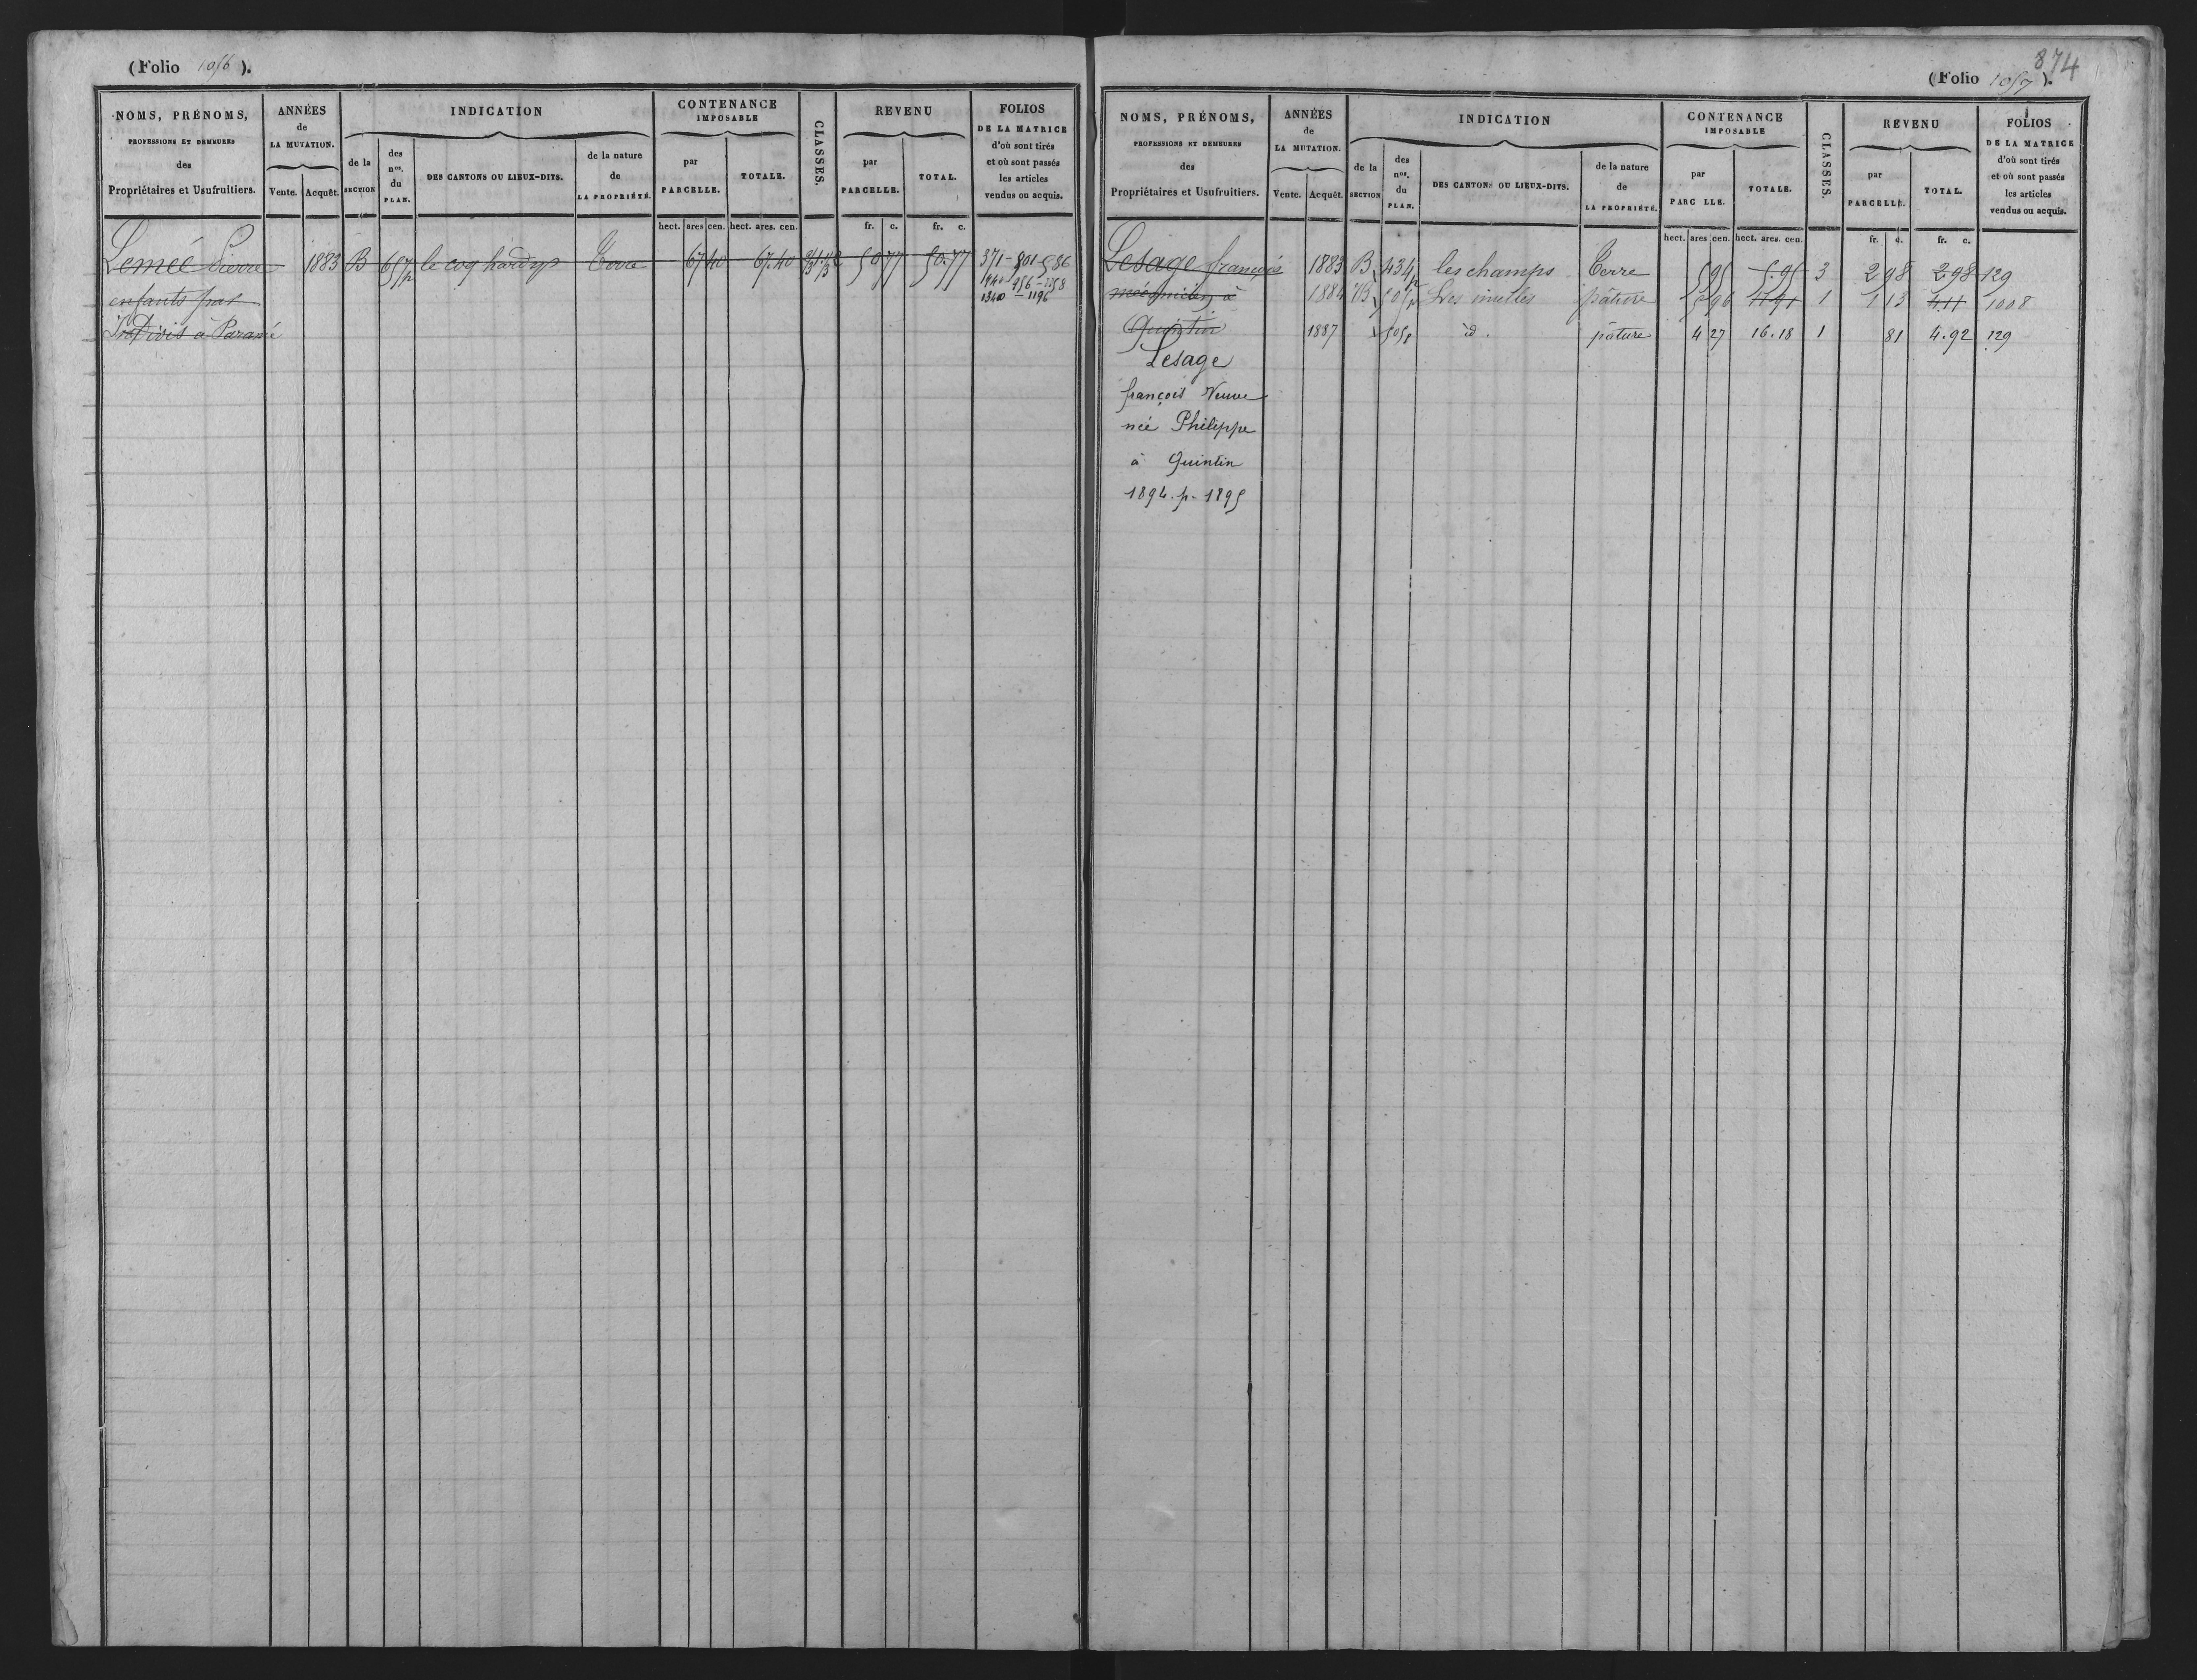 (Folio 1056).
NOMS, PRÉNOMS,
PROFESSIONS ET DEMEURES
des
Propriétaires et Usufruitiers.
ANNÉES
de
LA MUTATION.
Vente. Acquêt.
INDICATION
de la
SECTION
des
nos.
du
PLAN.
DES CANTONS OU LIEUX-DITS.
de la nature
de
LA PROPRIÉTÉ.
CONTENANCE
IMPOSABLE
par
PARCELLE.
TOTALE.
CLASSES.
REVENU
par
PARCELLE.
TOTAL.
FOLIOS
DE LA MATRICE
d'où sont tirés
et où sont passés
les articles
vendus ou acquis.
hect. ares cen. hect. ares. cen. fr. c. fr. c.
Lemée Pierre 1883 B 657p le coq hardy Terre 67 40 67.40 50 77 50.77 371-501-586
1340 - 1196
enfants par
Indivis à Paramé
874
(Folio 1057).
NOMS, PRÉNOMS,
PROFESSIONS ET DEMEURES
des
Propriétaires et Usufruitiers.
ANNÉES
de
LA MUTATION.
Vente. Acquêt.
INDICATION
de la
SECTION
des
nos.
du
PLAN.
DES CANTONS OU LIEUX-DITS.
de la nature
de
LA PROPRIÉTÉ.
CONTENANCE
IMPOSABLE
par
PARC LLE.
TOTALE.
CLASSES.
REVENU
par
PARCELLE.
TOTAL.
FOLIOS
DE LA MATRICE
d'où sont tirés
et où sont passés
les articles
vendus ou acquis.
hect. ares cen. hect. ares. cen. fr. c. fr. c.
Lesage françois 1883 B 434p les champs Terre 5 95 5.95 3 2 98 2.98 129
mécanicien à 1884 B 505p Les pâture 5 96 11.91 1 1 13 4.11 1008
Quintin 1887 505p id. pâture 4 27 16.18 1 81 4.92 129
Lesage
françois Veuve
née Philippe
à Quintin
1894. p. 1895